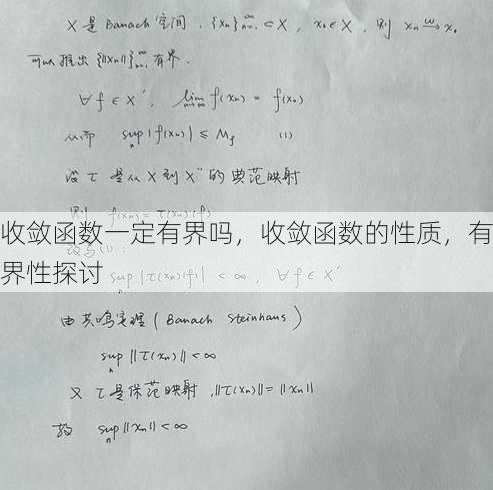 X 是 Banach 空间, {xₙ}ₙ₌₁^∞ ⊂ X, x₀ ∈ X, 则 xₙ →ʷ x₀
可以推出 {‖xₙ‖}ₙ₌₁^∞ 有界.
∀ f ∈ X′, lim_{n→∞} f(xₙ) = f(x₀)
从而 sup_n |f(xₙ)| ≤ M_f (1)
设 τ 是从 X 到 X″ 的典范映射
则 f(xₙ) = τ(xₙ)(f)
收敛函数一定有界吗，收敛函数的性质，有
界性探讨
sup_n |τ(xₙ)(f)| < ∞, ∀ f ∈ X′
由共鸣定理 (Banach Steinhaus)
sup_n ‖τ(xₙ)‖ < ∞
又 τ 是保范映射, ‖τ(xₙ)‖ = ‖xₙ‖
故 sup_n ‖xₙ‖ < ∞